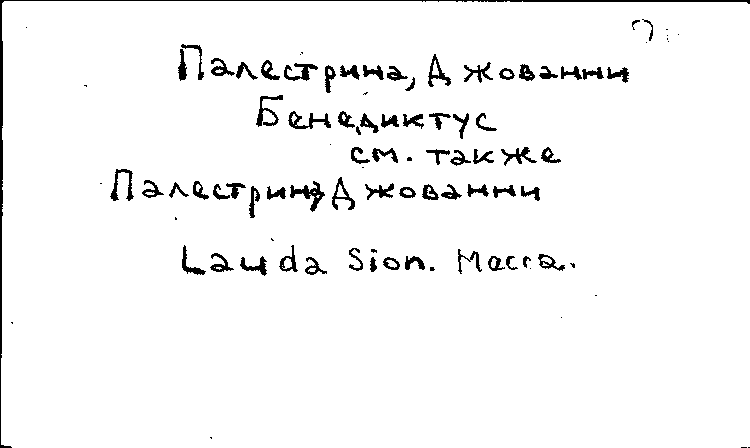 Палестрина, Джованни
Бенедиктус
см. также
Палестрина, Джованни
Lauda Sion. Месса.